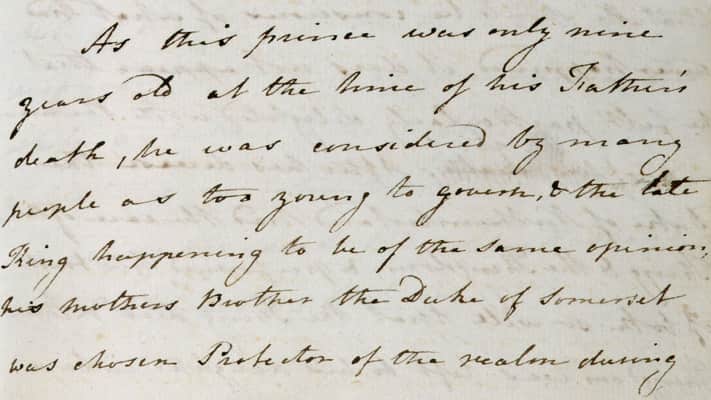 As this prince was only nine
years old at the time of his Father's
death, he was considered by many
people as too young to govern, & the late
King happening to be of the same opinion,
his mothers Brother the Duke of Somerset
was chosen Protector of the realm during